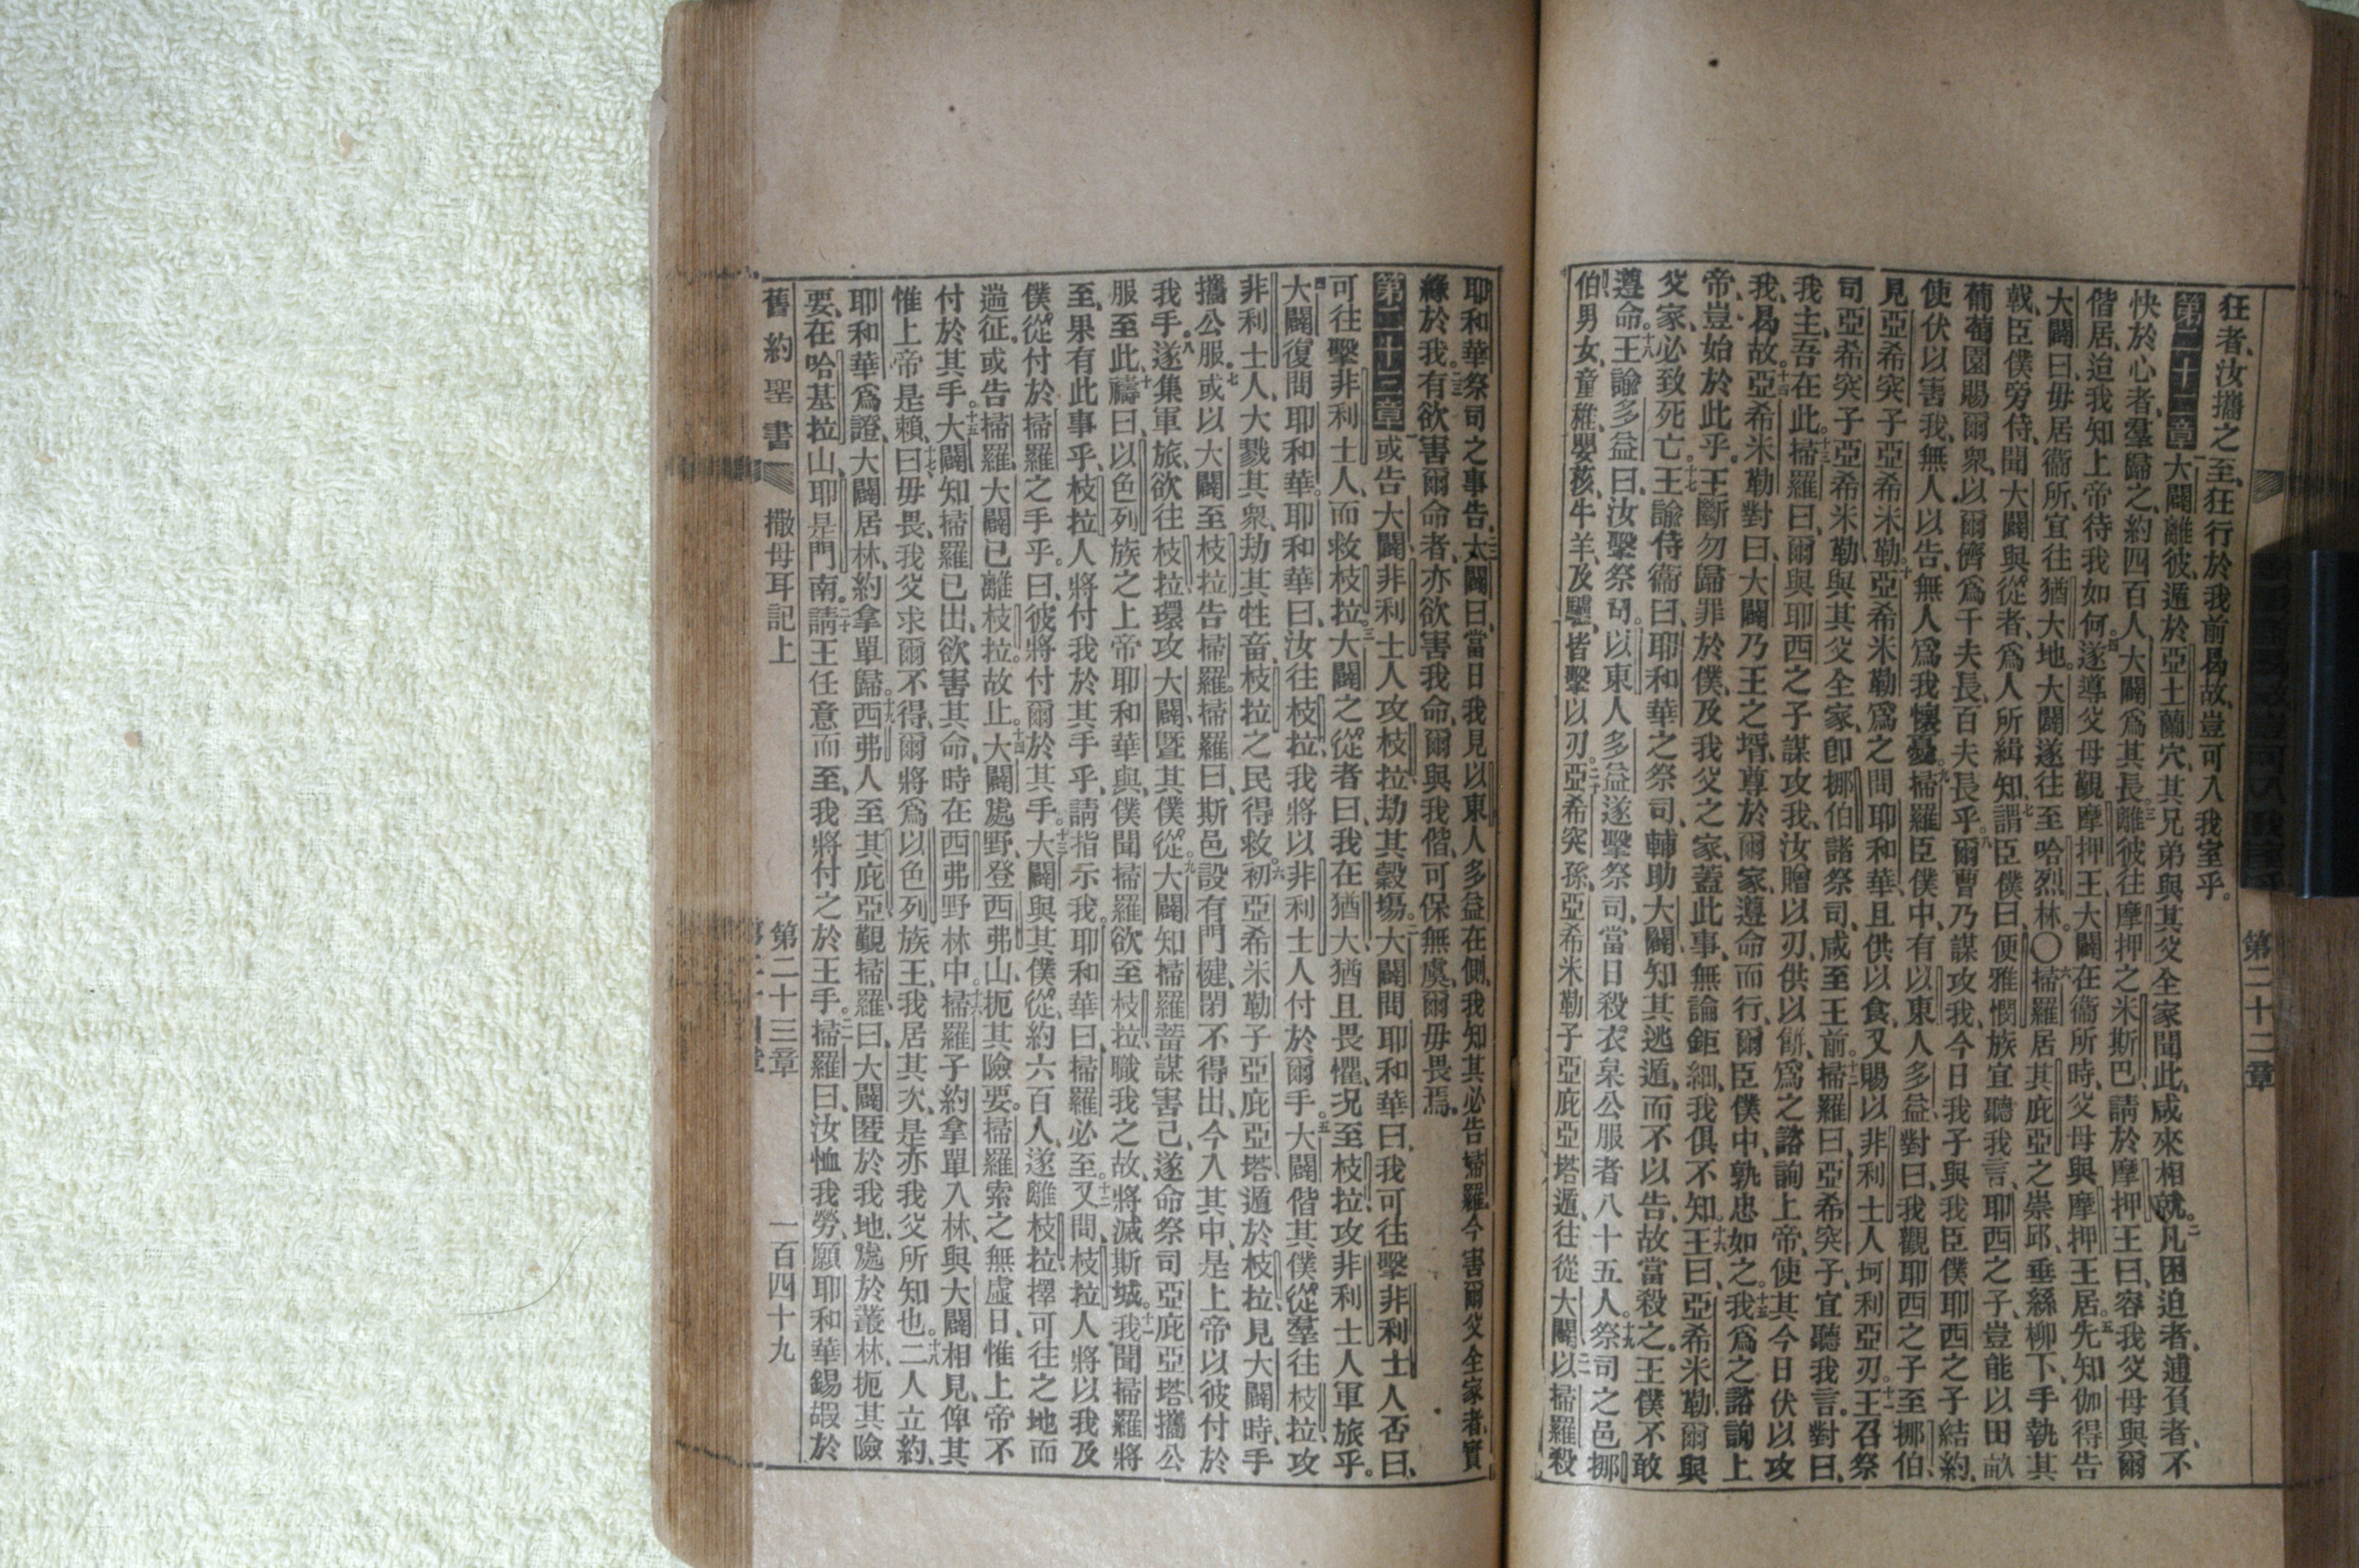 第二十二章
狂者、汝攜之至、狂行於我前曷故、豈可入我室乎。
第二十二章 大闢離彼、遁於亞土蘭穴、其兄弟與其父全家聞此、咸來相就。二凡困迫者、逋負者、不
快於心者、羣歸之、約四百人、大闢爲其長。三離彼往摩押之米斯巴、請於摩押王曰、容我父母與爾
偕居、迨我知上帝待我如何。四遂導父母覲摩押王、大闢在衞所時、父母與摩押王居。五先知伽得告
大闢曰、毋居衞所、宜往猶大地。大闢遂往至哈烈林。〇六掃羅居其庇亞之崇邱、垂絲柳下、手執其
戟、臣僕旁侍、聞大闢與從者、爲人所緝知、七謂臣僕曰、便雅憫族宜聽我言、耶西之子、豈能以田畝
葡萄園賜爾衆、以爾儕爲千夫長、百夫長乎。八爾曹乃謀攻我、今日我子與我臣僕耶西之子結約、
使伏以害我、無人以告、無人爲我懷憂。九掃羅臣僕中、有以東人多益對曰、我觀耶西之子至挪伯、
見亞希突子亞希米勒。十亞希米勒爲之問耶和華、且供以食、又賜以非利士人坷利亞刃。十一王召祭
司亞希突子亞希米勒、與其父全家、卽挪伯諸祭司、咸至王前。十二掃羅曰、亞希突子、宜聽我言、對曰、
我主、吾在此。十三掃羅曰、爾與耶西之子謀攻我、汝贈以刃、供以餅、爲之諮詢上帝、使其今日伏以攻
我、曷故。十四亞希米勒對曰、大闢乃王之壻、尊於爾家、遵命而行、爾臣僕中、孰忠如之。十五我爲之諮詢上
帝、豈始於此乎、王斷勿歸罪於僕、及我父之家、蓋此事、無論鉅細、我俱不知。十六王曰、亞希米勒、爾與
父家、必致死亡。十七王諭侍衞曰、耶和華之祭司、輔助大闢、知其逃遁、而不以告、故當殺之、王僕不敢
遵命。十八王諭多益曰、汝擊祭司。以東人多益遂擊祭司、當日殺衣枲公服者八十五人。十九祭司之邑挪
伯、男女、童稚、嬰孩、牛羊及驢、皆擊以刃。二十亞希突孫、亞希米勒子亞庇亞塔遁、往從大闢、二一以掃羅殺
耶和華祭司之事告、二二大闢曰、當日我見以東人多益在側、我知其必告掃羅、今害爾父全家者、實
緣於我。二三有欲害爾命者、亦欲害我命、爾與我偕、可保無虞、爾毋畏焉。
第二十三章 或告大闢、非利士人攻枝拉、劫其穀場。二大闢問耶和華曰、我可往擊非利士人否、曰、
可往擊非利士人、而救枝拉。三大闢之從者曰、我在猶大、猶且畏懼、况至枝拉、攻非利士人軍旅乎。
四大闢復問耶和華。耶和華曰、汝往枝拉、我將以非利士人付於爾手。五大闢偕其僕從、羣往枝拉、攻
非利士人、大戮其衆、劫其牲畜、枝拉之民得救。六初亞希米勒子亞庇亞塔、遁於枝拉、見大闢時、手
攜公服。七或以大闢至枝拉告掃羅。掃羅曰、斯邑設有門楗、閉不得出、今入其中、是上帝以彼付於
我手。八遂集軍旅、欲往枝拉、環攻大闢、曁其僕從。九大闢知掃羅蓄謀害己、遂命祭司亞庇亞塔、攜公
服至此、十禱曰、以色列族之上帝耶和華與、僕聞掃羅欲至枝拉、職我之故、將滅斯城。十一我聞掃羅將
至、果有此事乎、枝拉人將付我於其手乎、請指示我。耶和華曰、掃羅必至。十二又問、枝拉人將以我及
僕從、付於掃羅之手乎。曰、彼將付爾於其手。十三大闢與其僕從、約六百人、遂離枝拉、擇可往之地而
遄征。或告掃羅、大闢已離枝拉。故止。十四大闢處野、登西弗山、扼其險要。掃羅索之無虛日、惟上帝不
付於其手。十五大闢知掃羅已出、欲害其命、時在西弗野林中。十六掃羅子約拿單入林、與大闢相見、俾其
惟上帝是賴、十七曰毋畏、我父求爾不得、爾將爲以色列族王、我居其次、是亦我父所知也。十八二人立約、
耶和華爲證、大闢居林、約拿單歸。十九西弗人至其庇亞、覲掃羅曰、大闢匿於我地、處於叢林、扼其險
要、在哈基拉山、耶是門南。二十請王任意而至、我將付之於王手。二一掃羅曰、汝恤我勞、願耶和華錫嘏於
舊約聖書 撒母耳記上 第二十三章 一百四十九